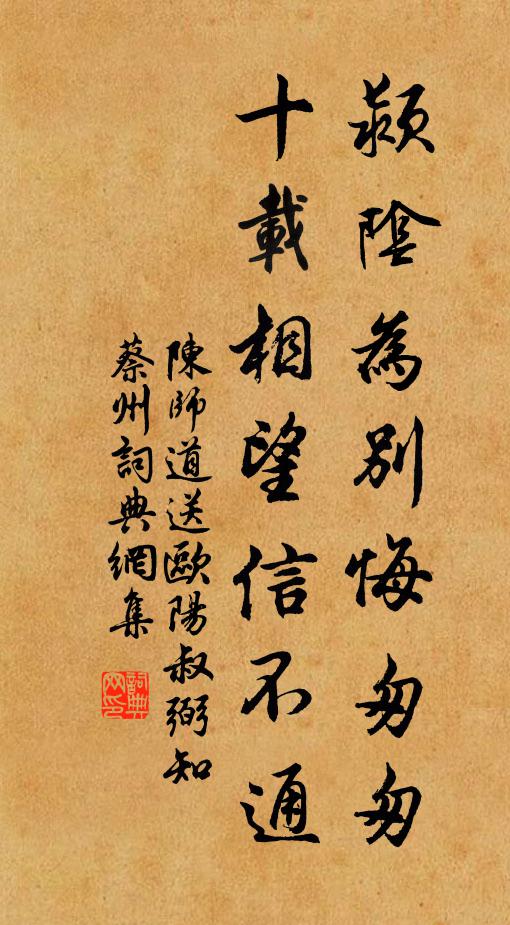 颍陰為別悔匆匆
十載相望信不通
陳師道送歐陽叔弼知
蔡州詞典網集
詞典
网印